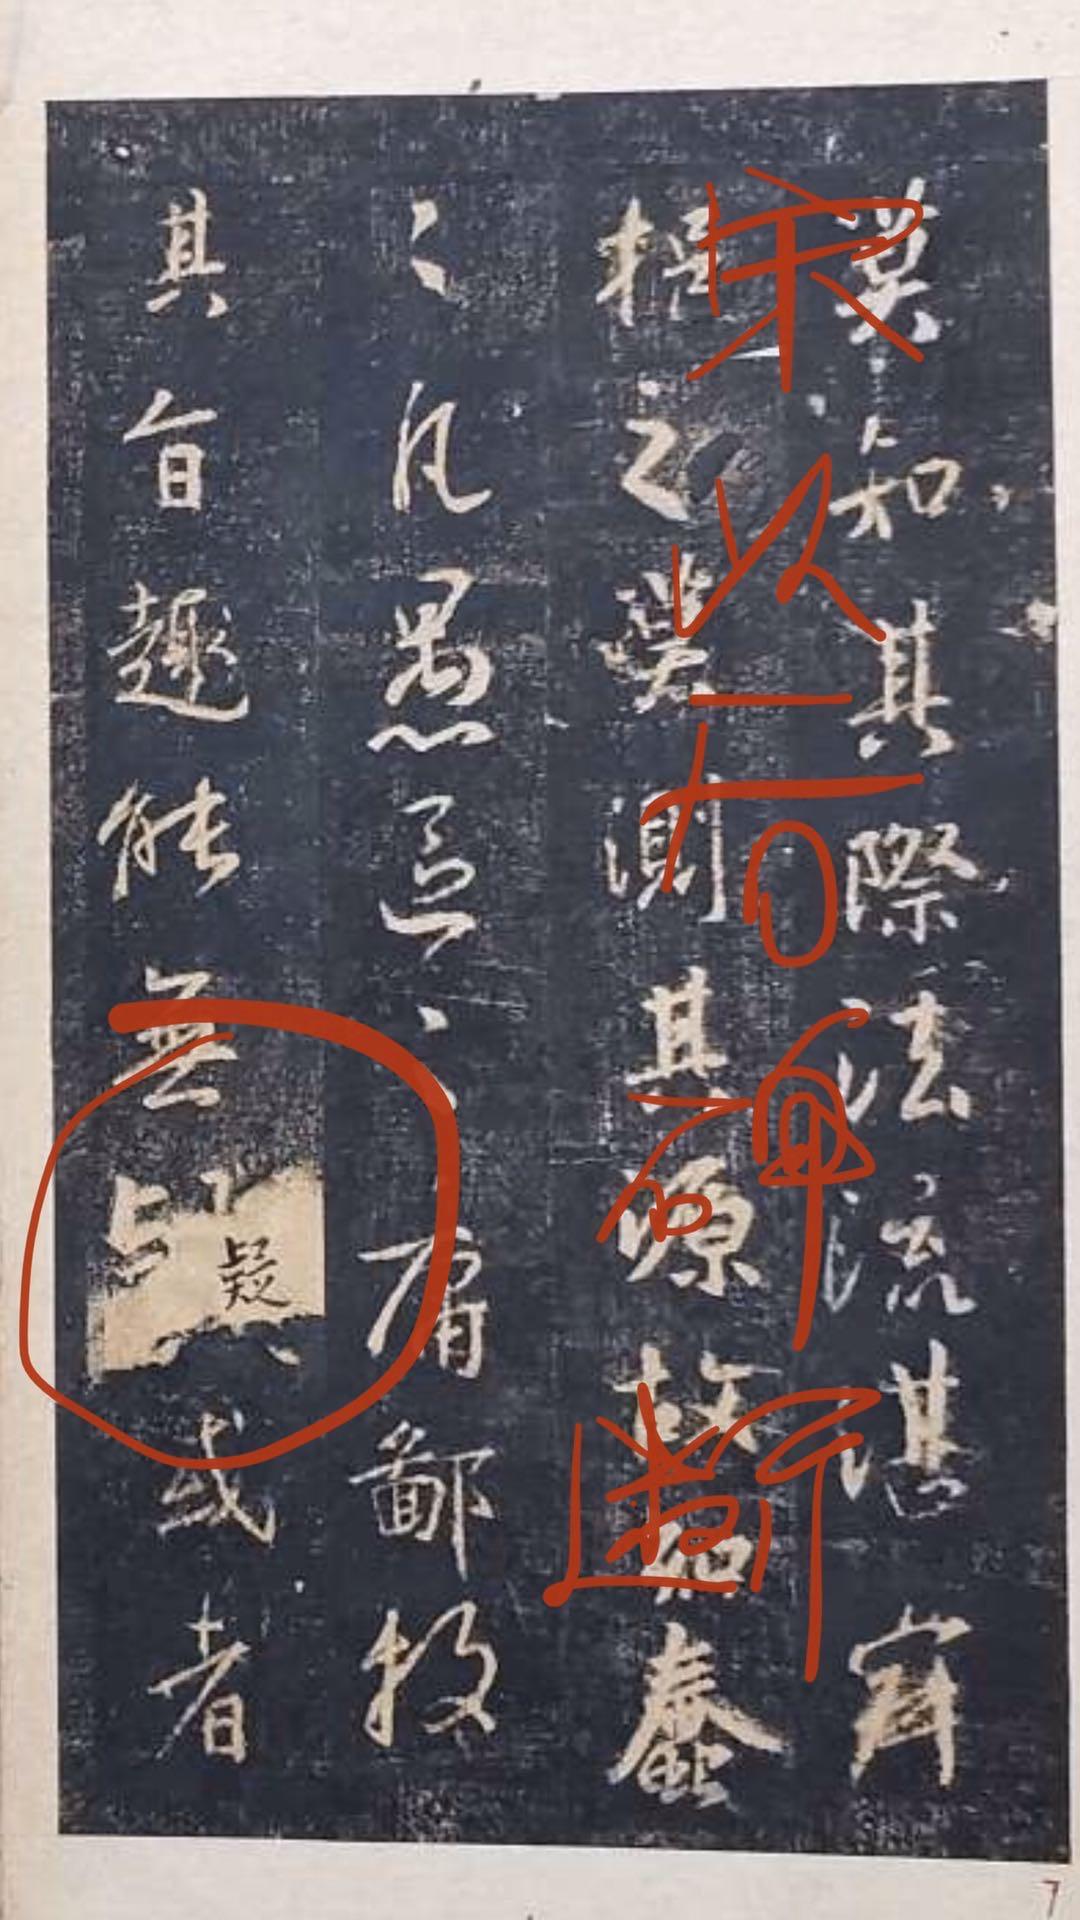 莫知其際法流湛寂
挹之莫測其源故知蠢
〻凡愚區〻庸鄙投
其旨趣能無疑或者
宋以后碑断
7